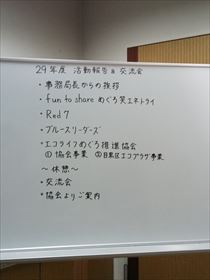 29年度 活動報告&交流会
・事務局長からの挨拶
・fun to share めぐろ笑エネトライ
・Red 7
・ブルースリーダーズ
・エコライフめぐろ推進協会
① 協会事業 ②目黒区エコプラザ事業
～休憩～
・交流会
・協会よりご案内